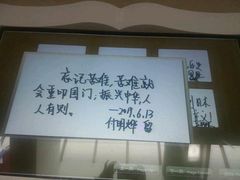 忘记苦难，苦难就
会重叩国门，振兴中华，人
人有则。
—2019.6.13
付明烨 留
日本